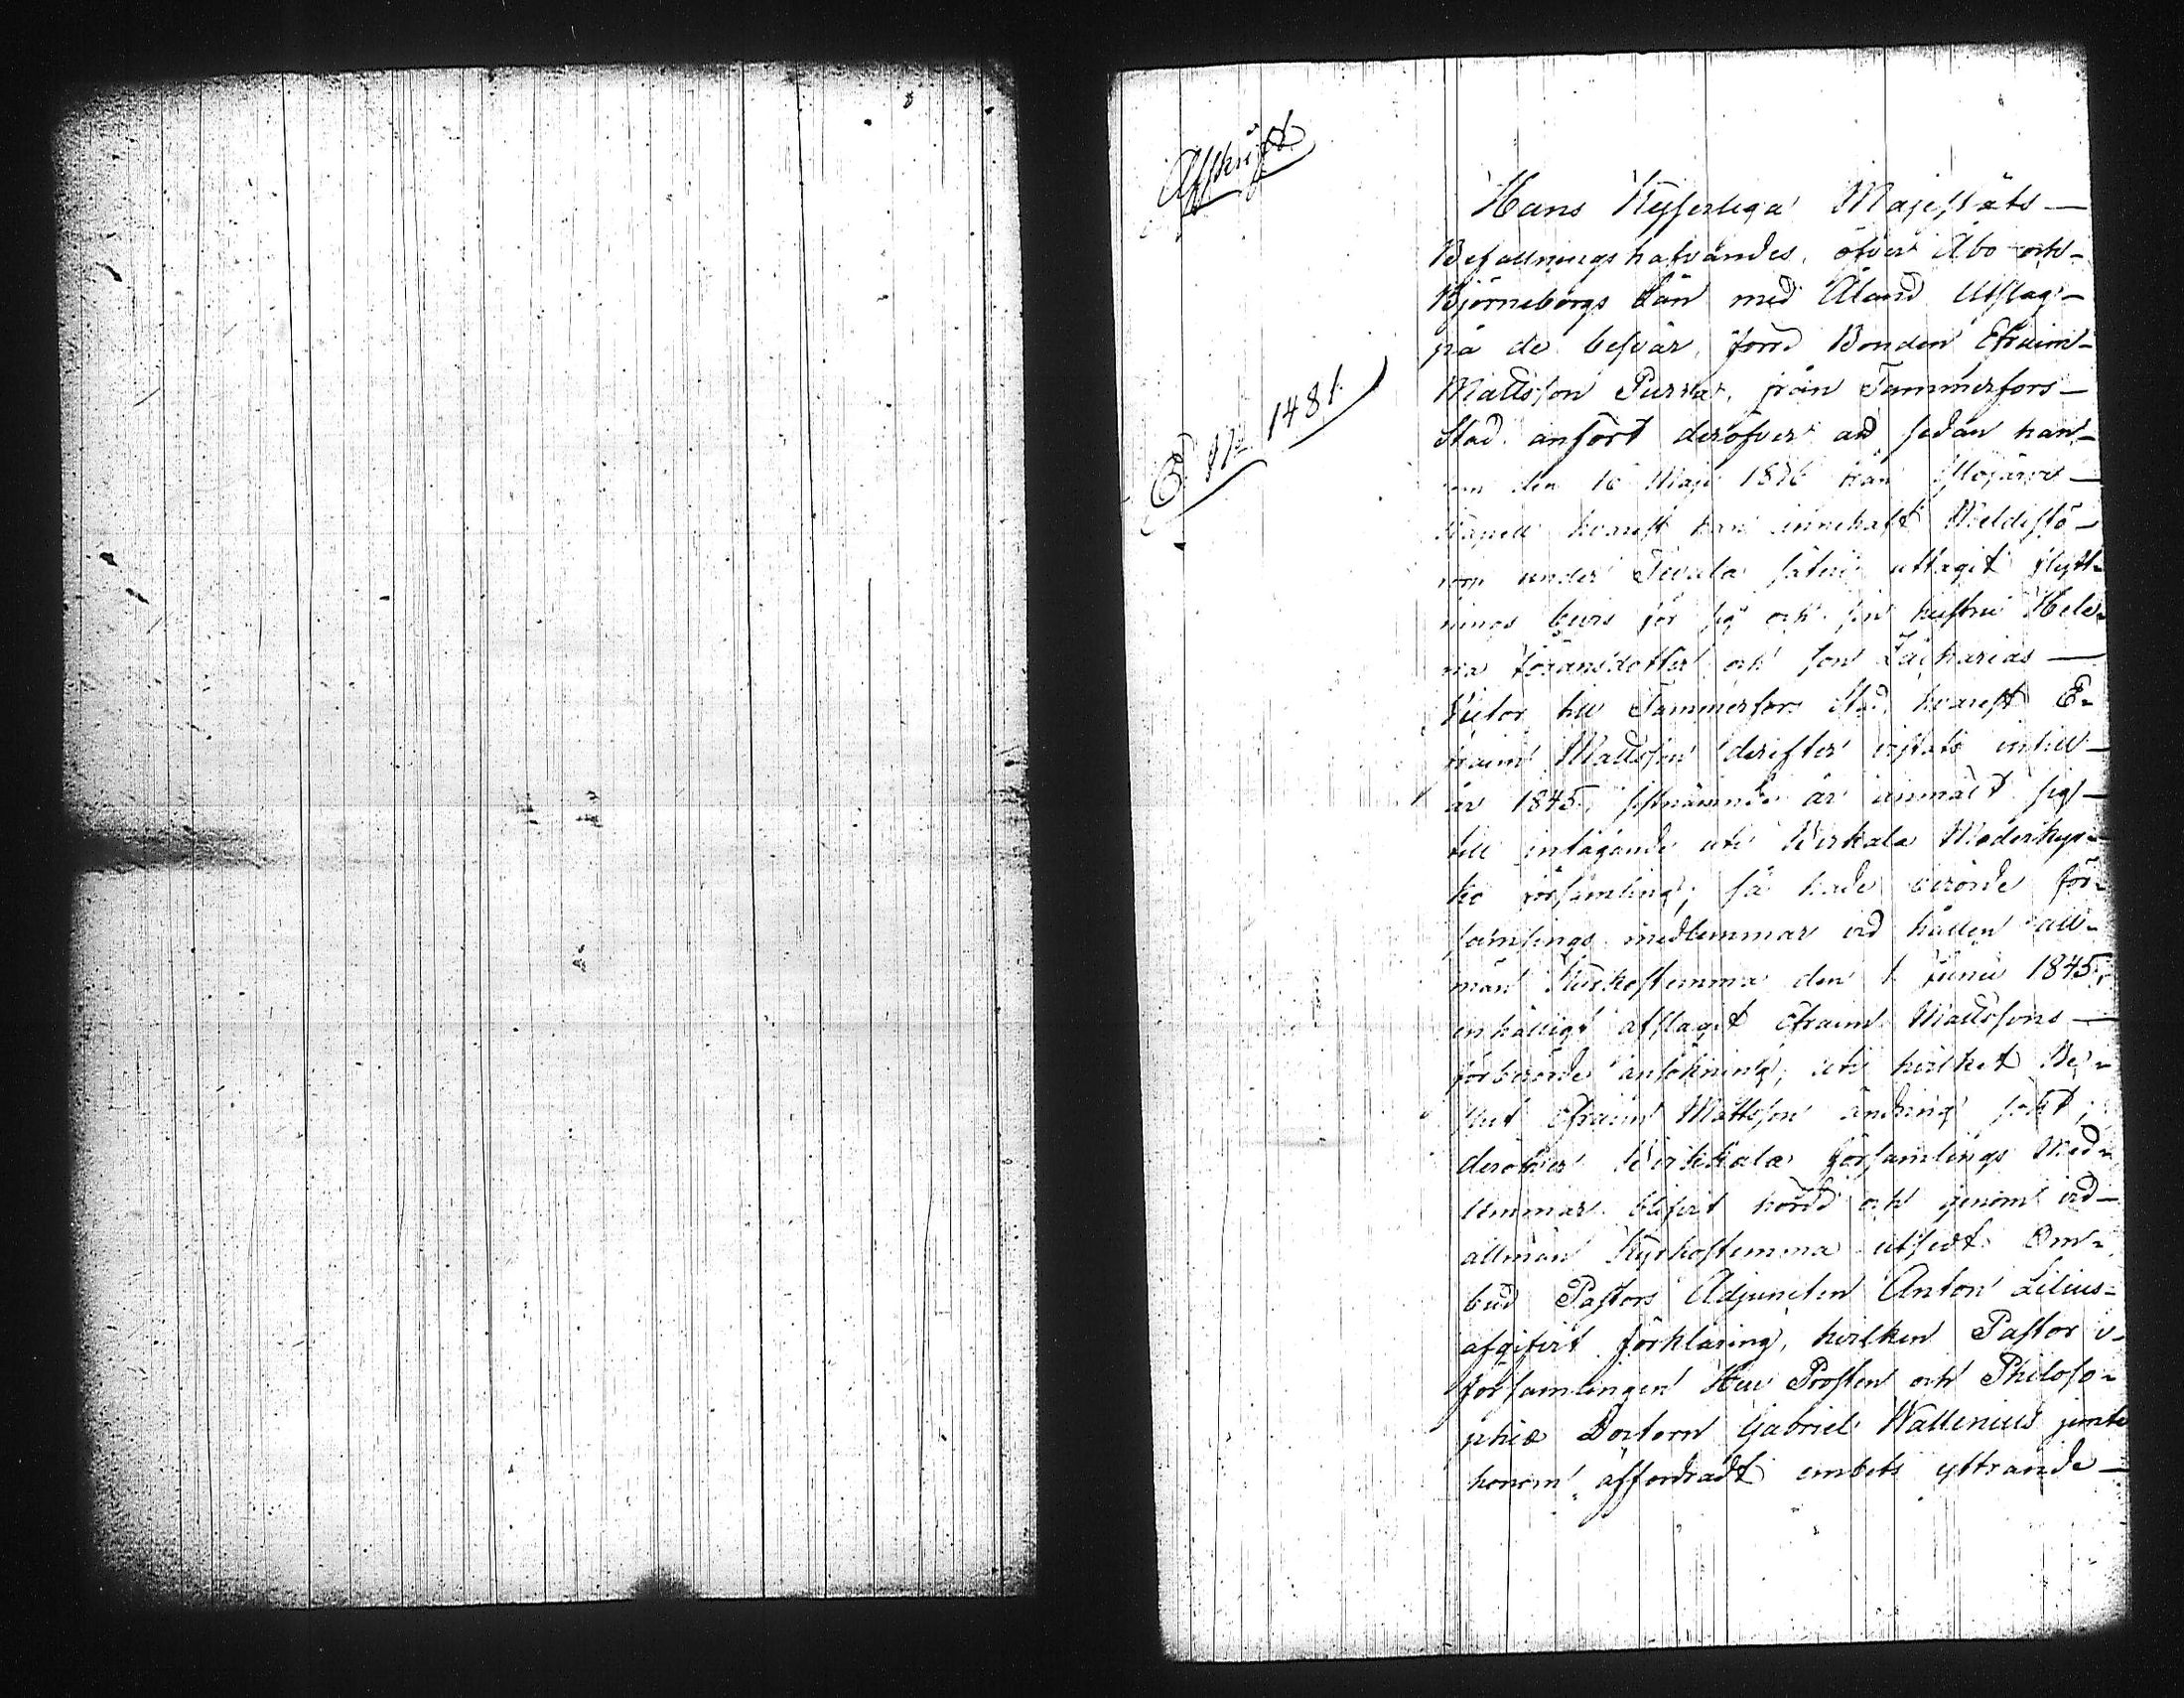 Afskrift
B. N° 1481.
Hans Kejserliga Majestäts
Befallningshafvandes öfver Åbo och
Björneborgs Län med Åland Utslag
på de besvär, förrd Bonden Efraim
Mattsson Purra, från Tammerfors
Stad anfört deröfver att sedan han
den 16 Maji från
Kapell hvarest han innehaft
under säteri uttagit flytt-
nings bevis för sig och sin hustru Hele-
na Göransdotter och son Zacharias
Victor till Tammerfors Stad, hvarest E-
fraim Mattsson derefter vistats intill
år 1845, sistnämnde år anmält sig
till intagande uti Birkala Moderkyr-
ko församling; så hade berörde för-
samlings medlemmar vid hållen all-
män Kyrkostemma den 1 Junii 1845,
enhälligt afslagit Efraim Mattssons
förberörde ansökning, uti hvilket Be-
slut Efraim Mattsson ändring sökt;
deröfver Birkkala församlings Med-
lemmar blifvit hörd och genom vid
allmän Kyrkostemma utsedt Om-
bud Pastors Adjuncten Anton Lilius
afgifvit förklaring, hvilken Pastor i
församlingen Herr Prosten och Philoso-
phiæ Doctorn Gabriel Wallenius jemte
honom affordradt embets yttrande